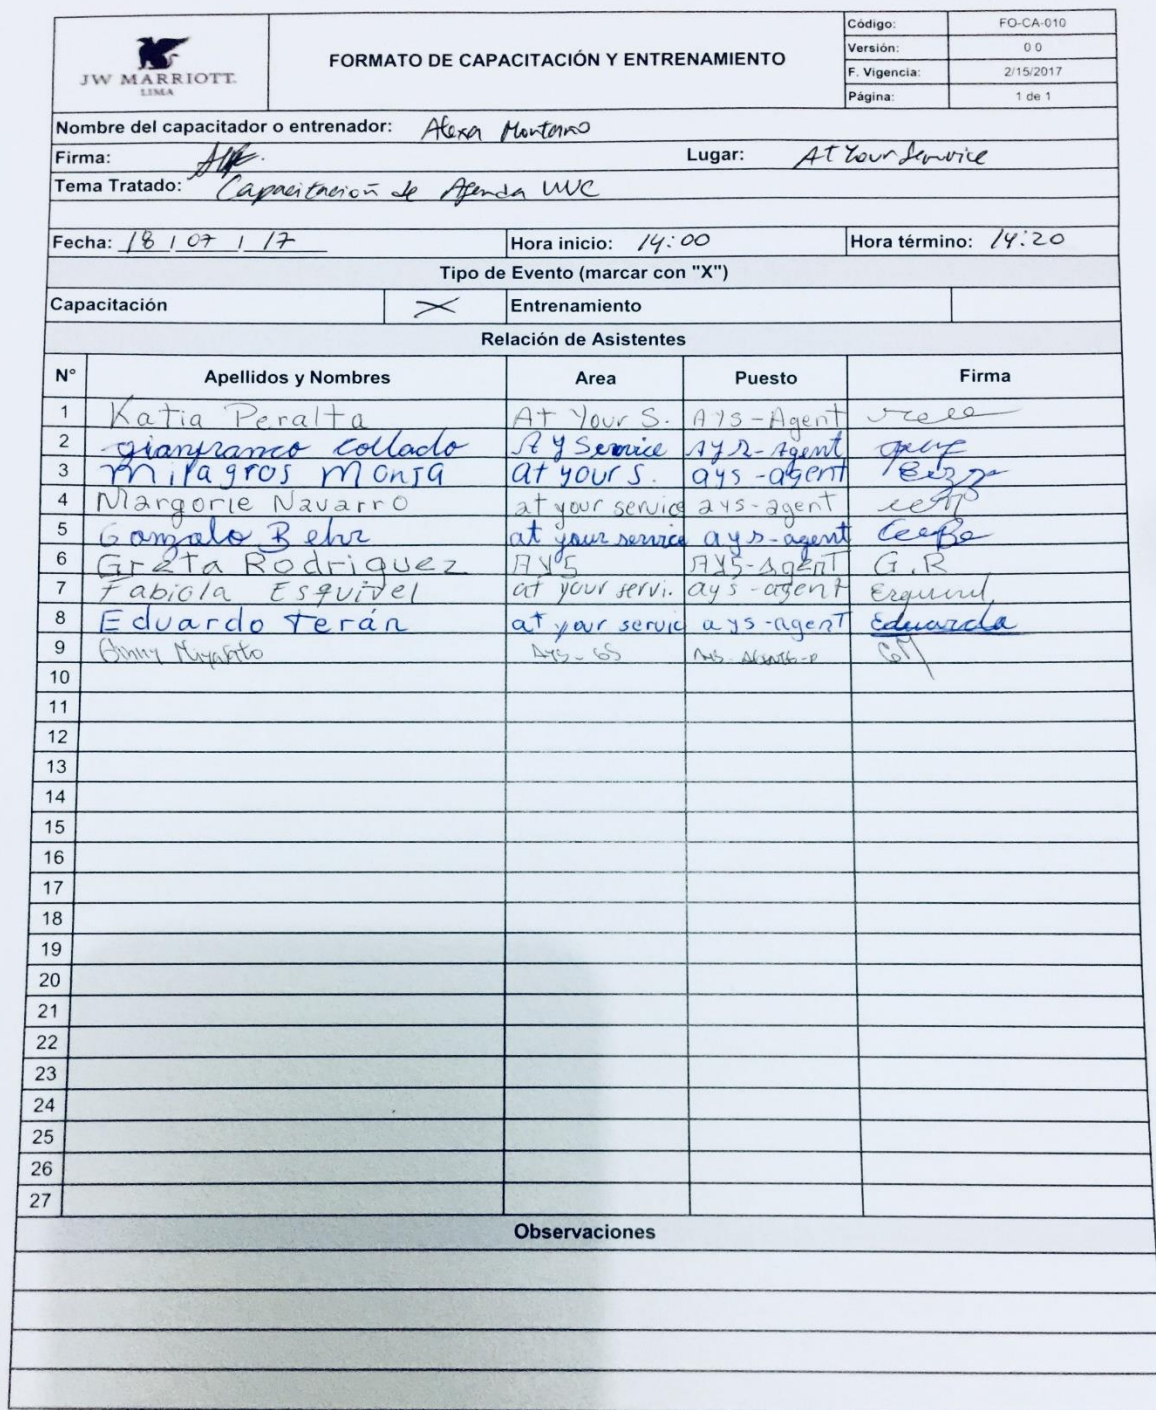 JW MARRIOTT
LIMA
FORMATO DE CAPACITACIÓN Y ENTRENAMIENTO
Código: FO-CA-010
Versión: 0 0
F. Vigencia: 2/15/2017
Página: 1 de 1
Nombre del capacitador o entrenador: Alexa
Firma: Lugar: At Your Service
Tema Tratado: Capacitación de Agenda
Fecha: 18 / 07 / 17 Hora inicio: 14:00 Hora término: 14:20
Tipo de Evento (marcar con "X")
Capacitación X Entrenamiento
Relación de Asistentes
N° Apellidos y Nombres Area Puesto Firma
1 Katia Peralta At Your S. AYS-Agent
2 gianfranco collado At y Service AYS-Agent
3 milagros at your S. ays-agent
4 Margorie Navarro at your service ays-agent
5 Gonzalo Behr at your service ays-agent
6 Greta Rodriguez AYS AYS-Agent G.R
7 Fabiola Esquivel at your servi. ays-agent Esquivel
8 Eduardo Terán at your servic ays-agent Eduardo
9 AYS-GS GM
10
11
12
13
14
15
16
17
18
19
20
21
22
23
24
25
26
27
Observaciones